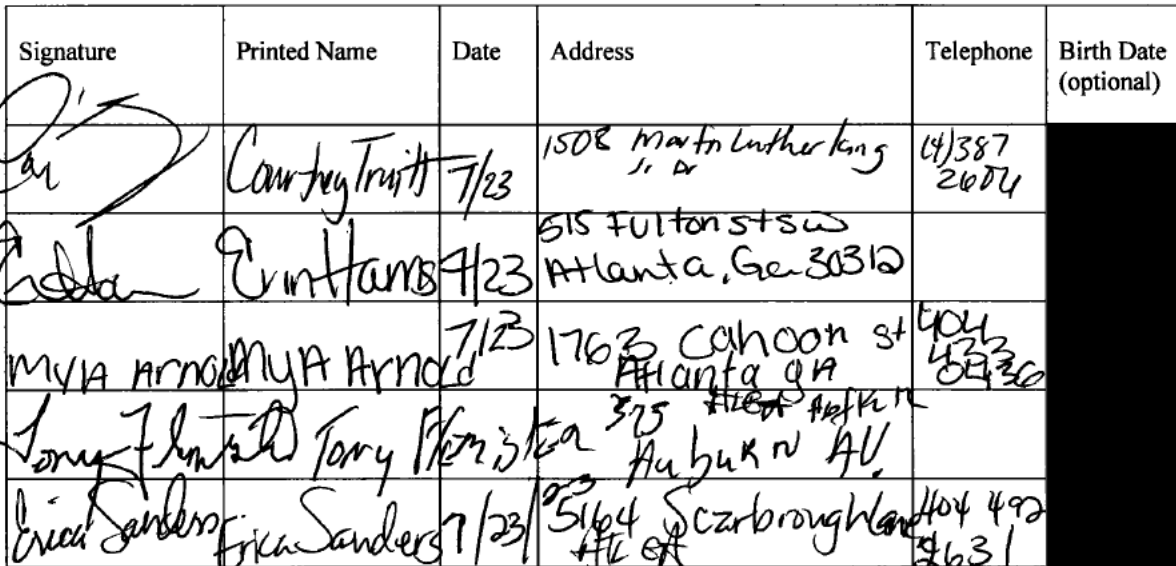 Signature Printed Name Date Address Telephone Birth Date
(optional)
Courtney Truitt 7/23 1508 Martin Luther King
Jr Dr
(4)387
2604
Erin Harris 7/23 515 Fulton st sw
Atlanta, Ga 30312
MYIA ArnolD MyA Arnold 7/23 1763 Cahoon st
Atlanta gA
404
433
0436
Tony Tony 375
Auburn AV.
Erica Sanders Erica Sanders 7/23/ 5164 Scarbrough Lane
404 492